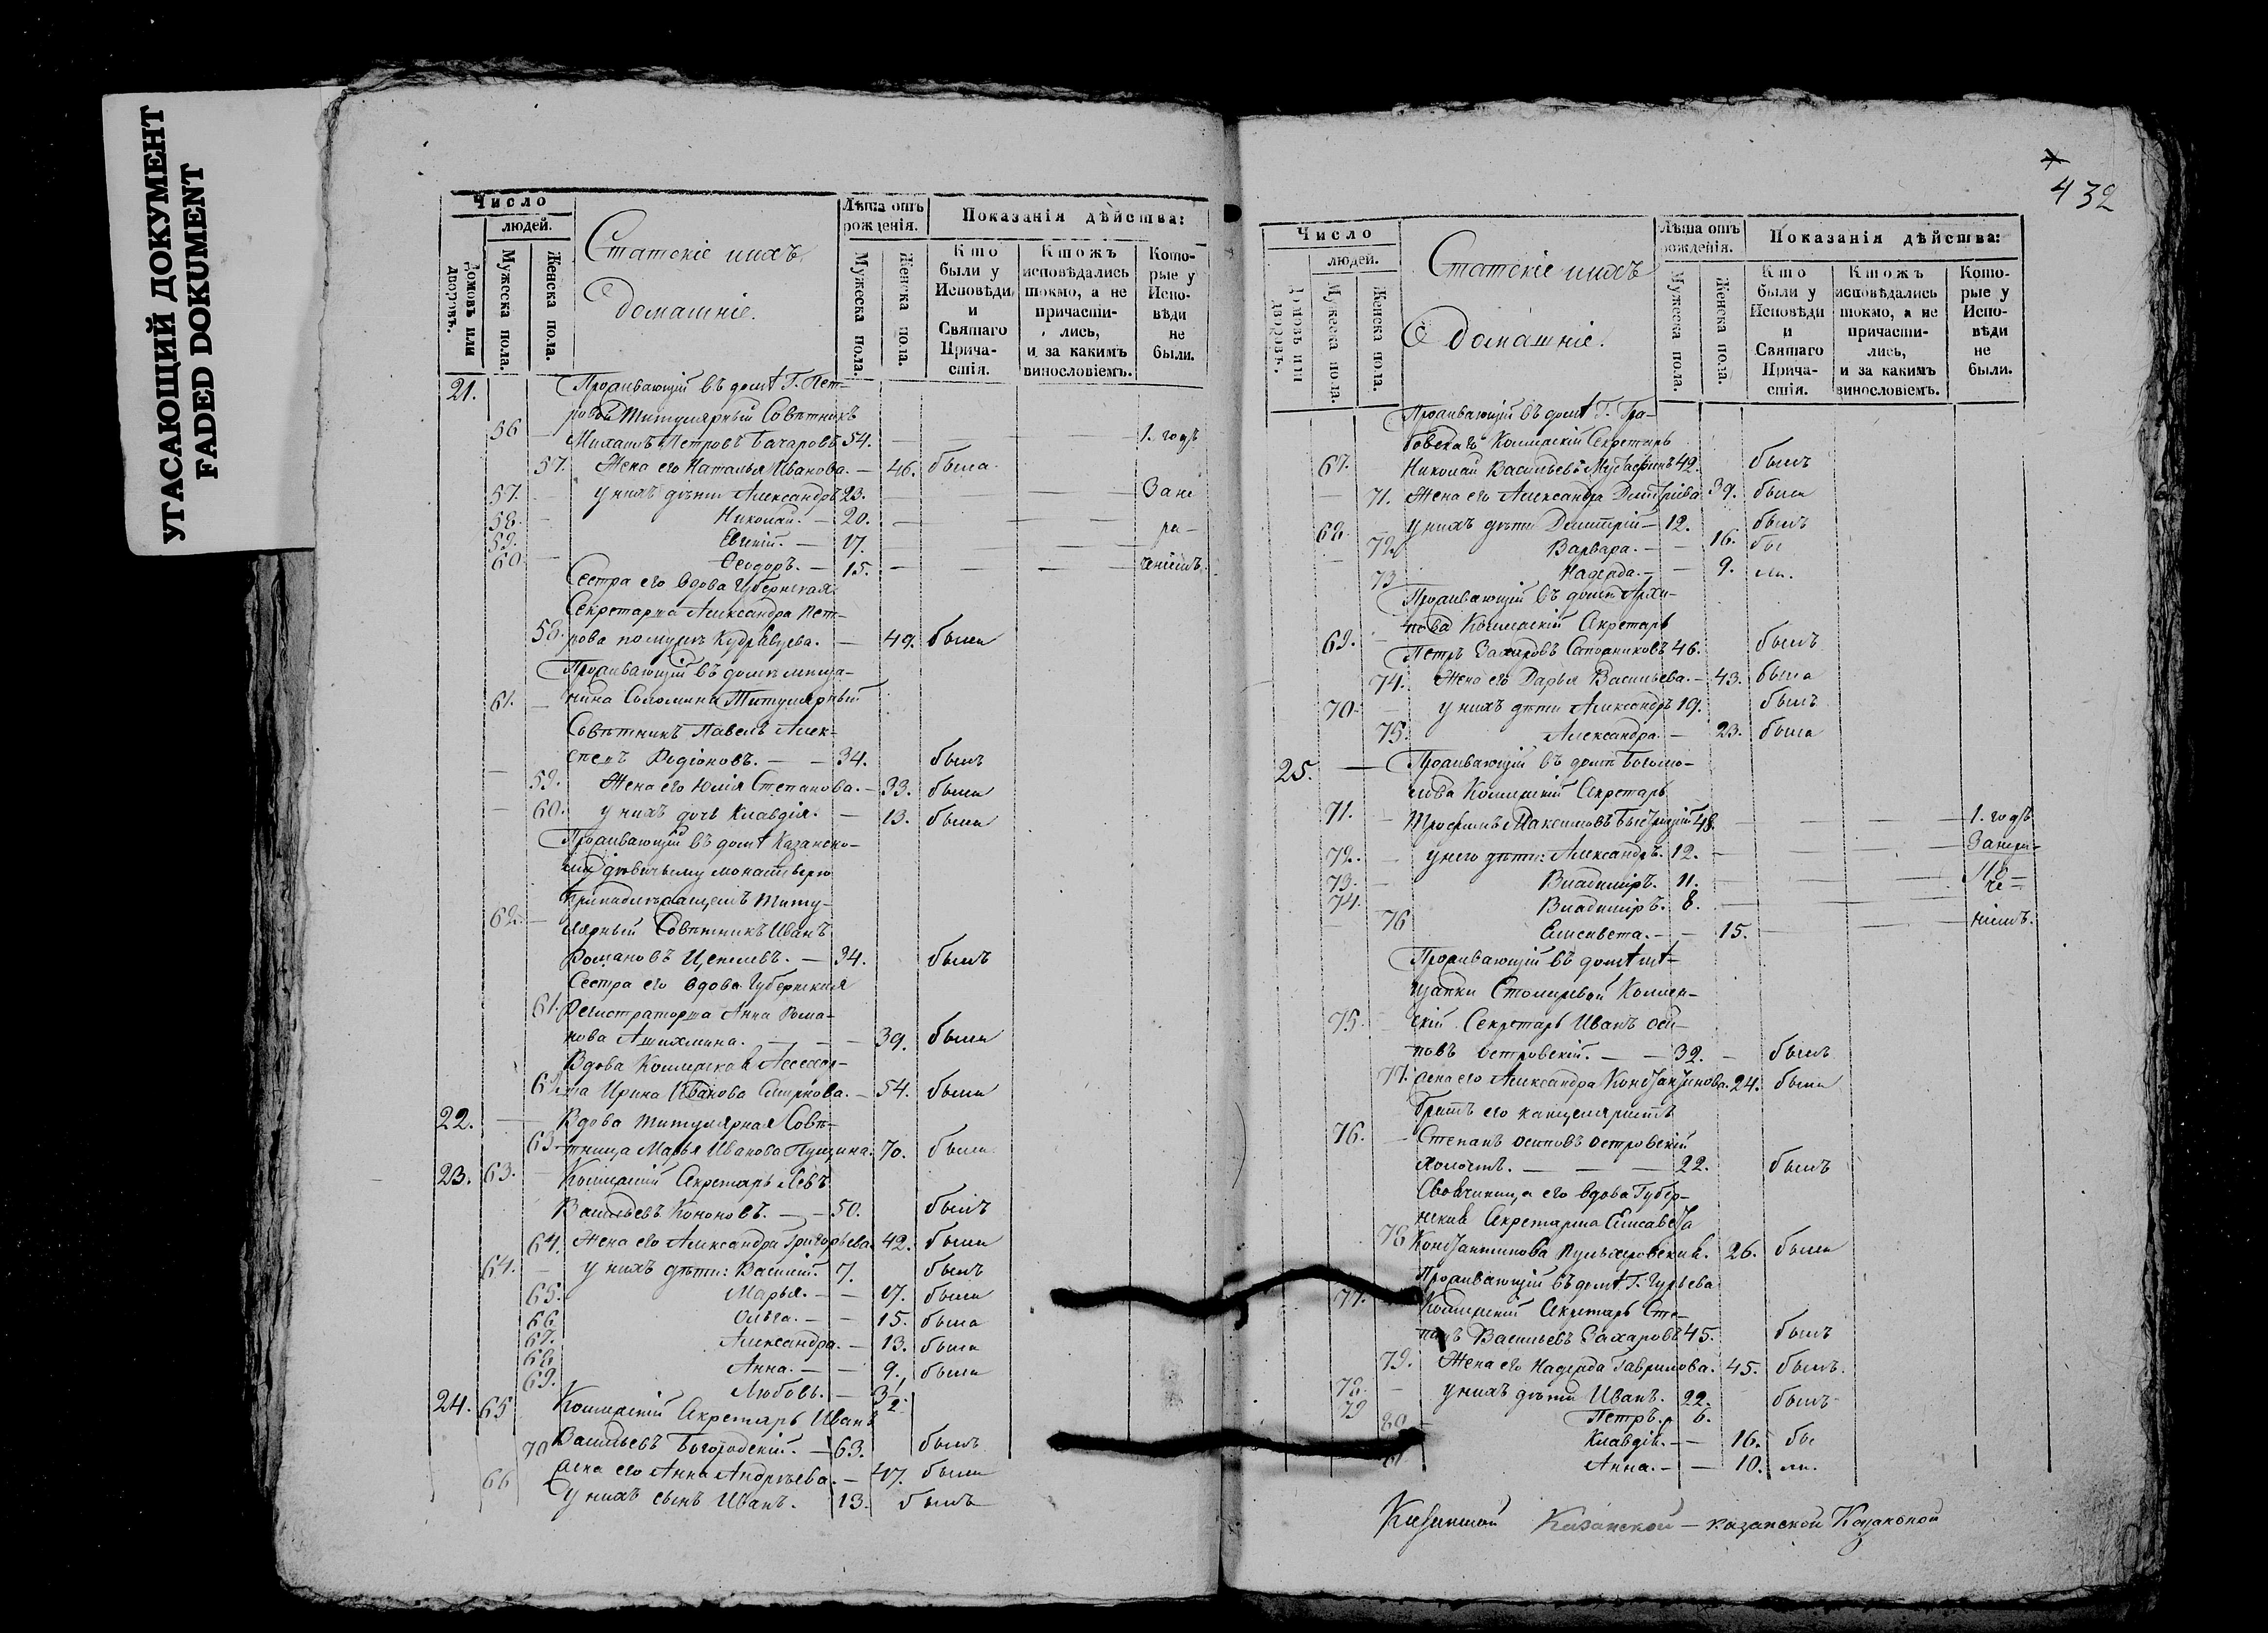 УГАСАЮЩИЙ ДОКУМЕНТ
FADED DOKUMENT
Число
людей.
Домовъ или дворовъ.
Мужеска пола.
Женска пола.
Статскіе и ихъ
Домашніе.
Лѣта отъ рожденія.
Мужеска пола.
Женска пола.
Показанія дѣйства:
Кто были у Исповѣди и Святаго Прича-стія.
Ктожъ исповѣдались токмо, а не причасти-лись, и за какимъ винословіемъ.
Кото-рые у Испо-вѣди не были.
21. Проживающій въ домѣ Г. Пет-
ровой Титулярный Совѣтникъ
56 — Михаилъ Петровъ Бахаровъ 54. — — — 1. годъ
57. Жена его Наталья Иванова. — 46. была
57. — у нихъ дѣти Александръ 23. — — Зане
58. — Николай. — 20. — — — ра-
59. — Евгеній. — 17. — — —
60. — Ѳеодоръ. — 15. — — — ченіемъ.
Сестра его вдова Губернская
Секретарша Александра Пет-
58. рова по мужѣ Кудрявцева. — 49. была
Проживающій въ домѣ мѣща-
61. — нина Соломина Титулярный
Совѣтникъ Павелъ Алек-
сѣевъ Родіоновъ. — — 34. былъ
— 59. Жена его Юлія Степанова. — 33. была
— 60. у нихъ дочь Клавдія. — 13. была
Проживающій въ домѣ Казанско-
му дѣвичьему монастырю
принадлежащемъ Титу-
62. — лярный Совѣтникъ Иванъ
Романовъ — 34. былъ
Сестра его вдова Губернская
61. Регистраторша Анна Рома-
нова Ашихмина. — — — 39. была
Вдова Коллежская Ассесор-
62. ша Ирина Иванова Смирнова. — 54. была
22. — Вдова Титулярная Совѣ-
63. тница Марья Иванова Пущина. 70. была
23. 63. — Коллежскій Секретарь Левъ
Васильевъ Кононовъ. — — 50. былъ
64. Жена его Александра Григорьева. 42. была
64. — у нихъ дѣти: Василій. 7. былъ
65. Марья. — — 17. была
66. Ольга. — — 15. была
67. Александра. — 13. была
68 Анна. — — 9. была
69. Любовь. — 3 1/2
24. 65 Коллежскій Секретарь Иванъ
Васильевъ Богородскій. — 63. былъ
70 Жена его Анна Андреева. — 47. была
66 У нихъ сынъ Иванъ. 13. былъ
432
Число
людей.
Домовъ или дворовъ.
Мужеска пола.
Женска пола.
Статскіе и ихъ
Домашніе.
Лѣта отъ рожденія.
Мужеска пола.
Женска пола.
Показанія дѣйства:
Кто были у Исповѣди и Святаго Прича-стія.
Ктожъ исповѣдались токмо, а не причасти-лись, и за какимъ винословіемъ.
Кото-рые у Испо-вѣди не были.
Проживающій въ домѣ Г. Гра-
бовскаго Коллежскій Секретарь
67. Николай Васильевъ 42. былъ
— 71. Жена его Александра Дмитріева 39. была
68. у нихъ дѣти Димитрій — 12. былъ
72. Варвара. — — 16. бы
73 Надежда. — — 9. ли.
Проживающій въ домѣ Архи-
пова Коллежскій Секретарь
69. — Петръ Захаровъ Сапожниковъ 46. былъ
74. Жена его Дарья Васильева. — 43. была
70. — у нихъ дѣти Александръ 19. былъ
75. Александра. — 23. была
25. — Проживающій въ домѣ Богомо-
лова Коллежскій Секретарь
71. — Трофимъ Максимовъ Быстрицкій 48. — — — 1. годъ
72. — у него дѣти: Александръ. 12. — — — Занера-
73. — Владиміръ. 11. — — —
74. Владиміръ. 8. — — — че-
— 76 Елисавета. — — 15. — — — ніемъ.
Проживающій въ домѣ мѣ-
щанки Столяровой Коллеж-
75. скій Секретарь Иванъ Оси-
повъ Островскій. — — 32. — былъ
77. Жена его Александра Константинова. 24. была
Братъ его канцеляристъ
76. — Степанъ Осиповъ Островскій
холостъ. — — — 22. былъ
Своячиница его вдова Губер-
нская Секретарша Елисавета
78 Константинова Пульхеровская. 26. была
Проживающій въ домѣ Г. Гурьева
77. Коллежскій Секретарь Сте-
панъ Васильевъ Захаровъ 45. былъ
79. Жена его Надежда Гаврилова. 45. былъ.
78. — у нихъ дѣти Иванъ. 22. былъ
79 Петръ. 6.
80 Клавдія. — — 16. бы
81 Анна. — — 10. ли.
Казанской Казанской — казанской Казанской